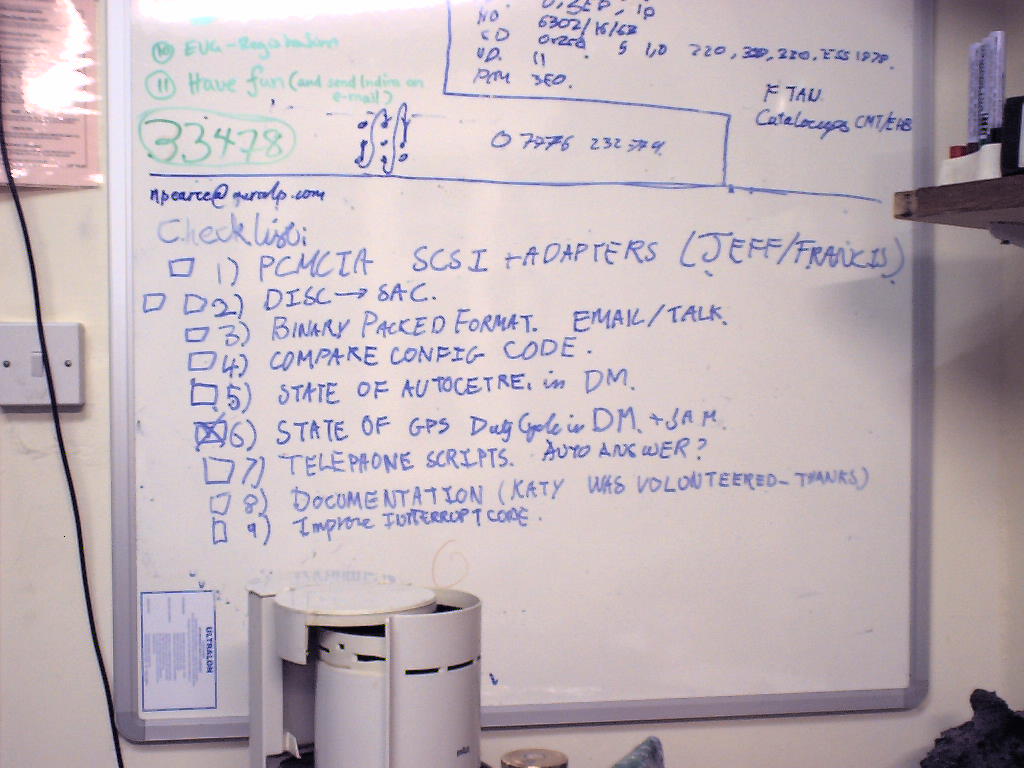 ⑩ EUG-Registration
⑪ Have fun (and send Indira an
e-mail)
33478
NO 6302/16/62
CD
11
360.
5 1,0 220, 320, 220, ESS 1978.
F TAN
CMT/EHB
0 7776
Checklist:
1) PCMCIA SCSI + ADAPTERS (JEFF/FRANCIS)
2) DISC → SAC.
3) BINARY PACKED FORMAT. EMAIL/TALK.
4) COMPARE CONFIG CODE.
5) STATE OF AUTOCETRE. in DM.
6) STATE OF GPS Duty Cycle in DM. + SAM.
7) TELEPHONE SCRIPTS. AUTO ANSWER?
8) DOCUMENTATION (KATY WAS VOLUNTEERED - THANKS)
9) Improve INTERRUPT CODE.
ULTRALON
BRAUN